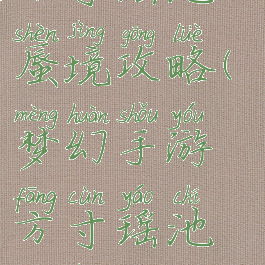 shèn jìng gōng lüè
蜃境攻略(
mèng huàn shǒu yóu
梦幻手游
fāng cùn yáo chí
方寸瑶池